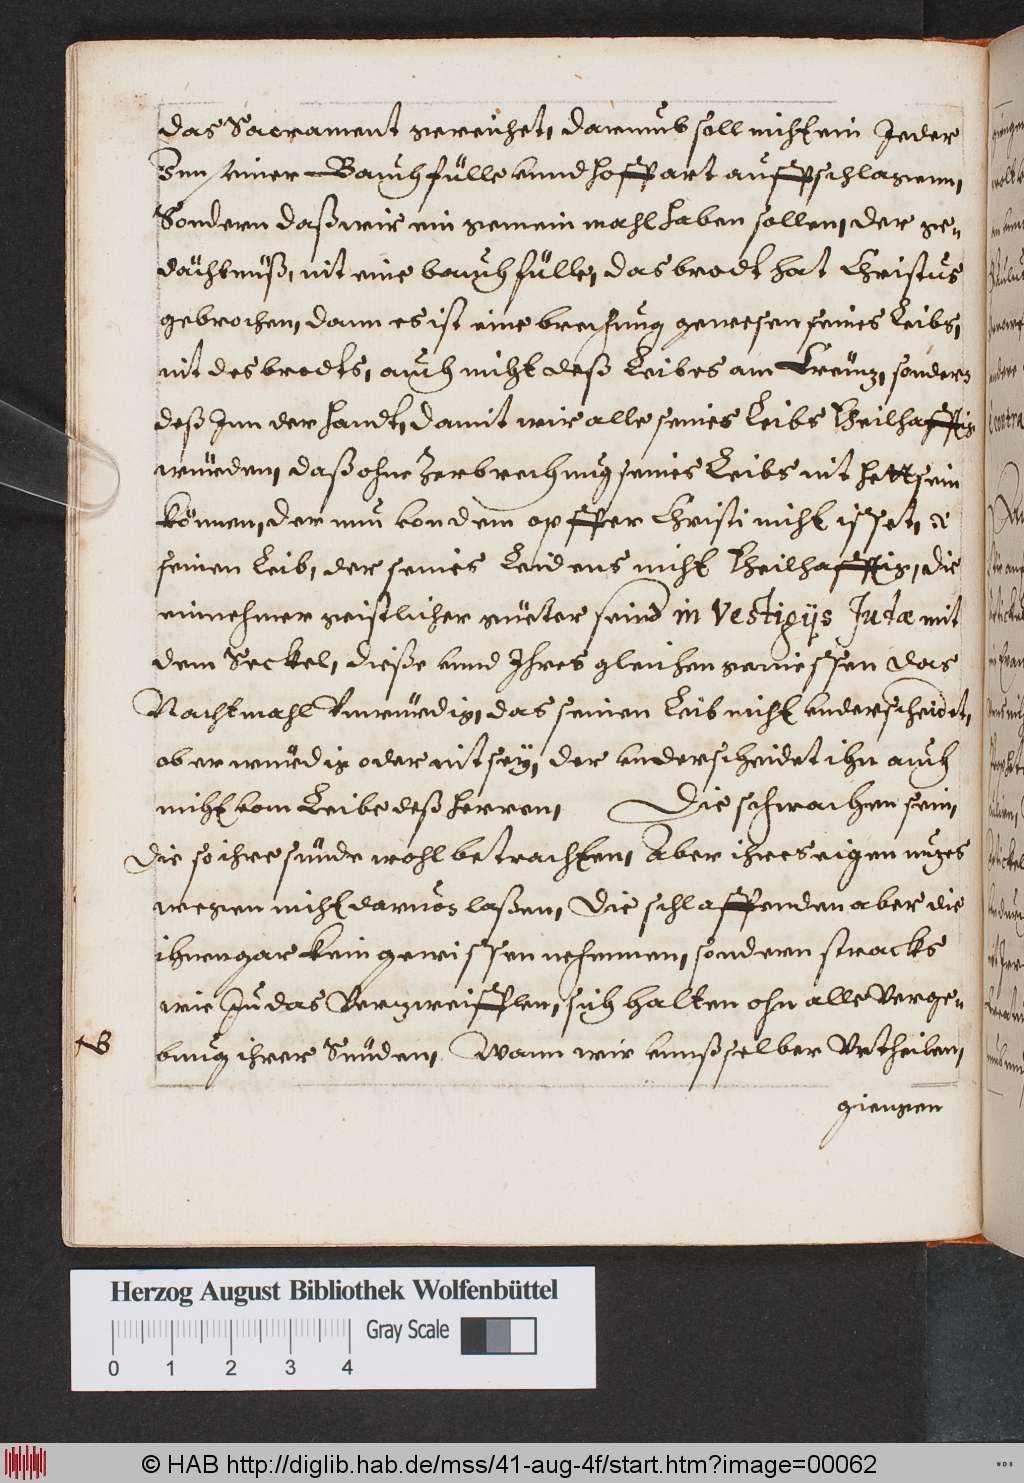 das Sacrament gereichet, darumb soll nicht ein Jeder
Inn einer Bauchfülle unnd hoffart auffschlagenn,
Sondern daß wir ein gemein mahl haben sollen, der ge-
dächtnüß, nit eine bauchfülle, das brodt hat Christus
gebrochen, dann es ist eine brechung gewesen seines Leibs,
nit des brodts, auch nicht deß Leibes am Creütz, sondern
deß Inn der handt, damit wir alle seines Leibs theilhafftig
würden, daß ohne Zerbrechung seines Leibs nit hett sein
können, der nun von dem opffer Christi nicht isset, &
seinen Leib, der seines Leidens nicht theilhafftig, die
einnehmer geistlicher güeter seind in vestigijs Judæ mit
dem Seckel, dieße unnd Ihres gleichen geniessen das
Nachtmahl Unwürdig, das seinen Leib nicht underscheidet,
ob er würdig oder nit sey, der underscheidet ihn auch
nicht vom Leibe deß Herren, Die schwachen sein,
die so ihre sünde wohl betrachten, Aber ihres eigen nuzes
wegen nicht darvon laßen, Die schlaffenden aber die
ihnen gar kein gewissen nehmmen, sondern stracks
wie Judas Verzweifflen, sich halten ohn alle Verge-
NB bung ihrer Sünden, Wann wir unnß selber Urtheilen,
giengen
Herzog August Bibliothek Wolfenbüttel
Gray Scale
0 1 2 3 4
© HAB http://diglib.hab.de/mss/41-aug-4f/start.htm?image=00062